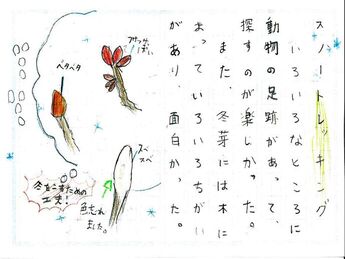 スノートレッキング
いろいろなところに
動物の足跡があって、
探すのが楽しかった。
また、冬芽には木に
よっていろいろちがい
があり、面白かった。
ベタベタ
スベ
スベ
触れ
ました。
冬をこすための
工夫!